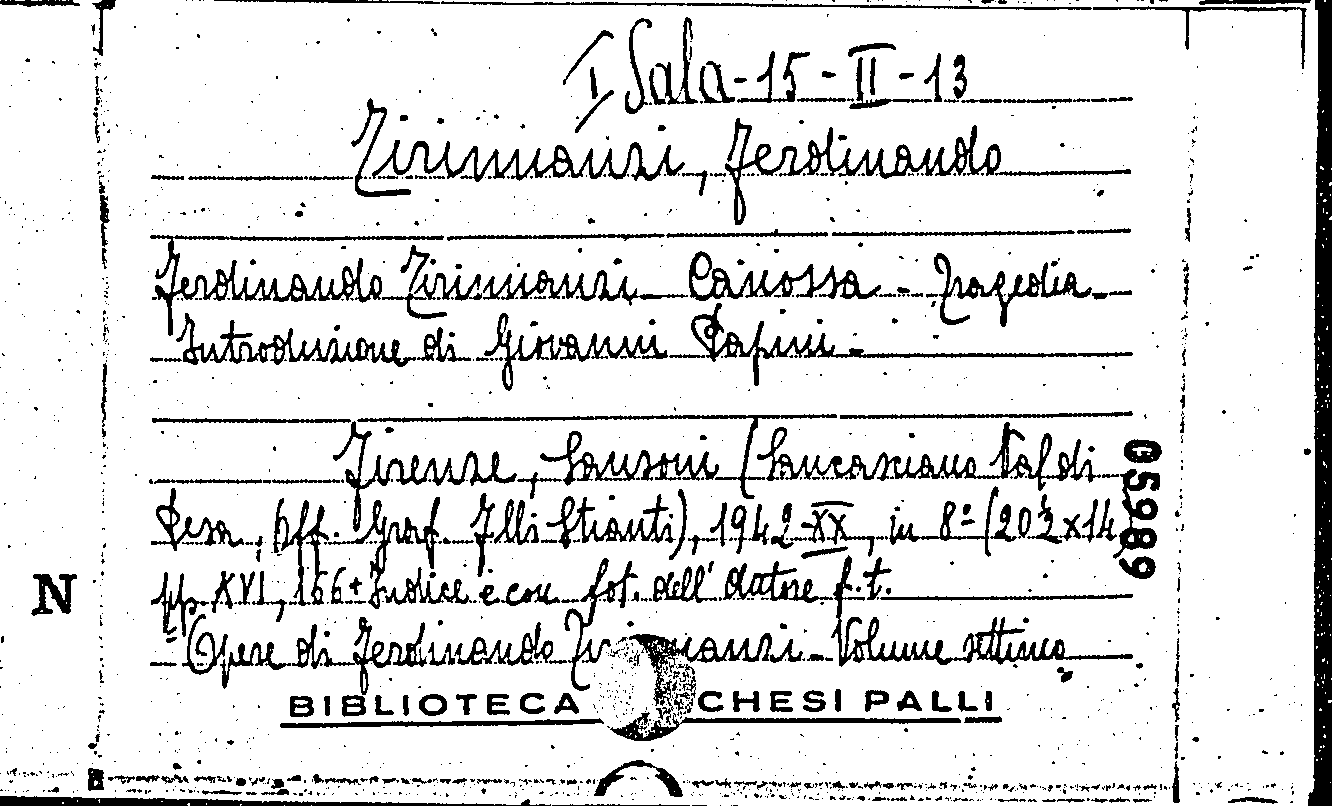 I Sala - 15 - II - 13
Tirinnanzi, Ferdinando
Ferdinando Tirinnanzi - Canossa - Tragedia -
Introduzione di Giovanni Papini -
Firenze, Sansoni (Sancasciano Val di
Pesa, Off. Graf. F.lli Stianti), 1942-XX, in 8º (20½x14)
pp. XVI, 166 + Indice e con fot. dell'Autore f.t.
"Opere di Ferdinando - Volume settimo"
BIBLIOTECA CHESI PALLI
05989
N